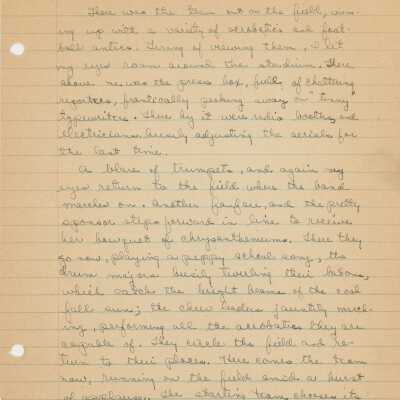 There was the team out on the field, warm-
ing up with a variety of acrobatics and foot-
ball antics. Tiring of viewing them, I let
my eyes roam around the stadium. There
above me was the press box, full of chattering
reporters, frantically pecking away on "tinny"
typewriters. There by it were radio booths, and
electricians busily adjusting the aerials for
the last time.
A blare of trumpets, and again my
eyes return to the field where the band
marches on. Another fanfare, and the pretty
sponsor steps forward in line to receive
her bouquet of chrysanthemums. There they
go now, playing a peppy school song, the
drum majors busily twirling their batons,
which catch the bright beams of the cool
fall sun; the cheer leaders jauntily march-
ing, performing all the acrobatics they are
capable of. They circle the field and re-
turn to their places. Here comes the team
now, running on the field amid a burst
of applause. The starting team chooses its